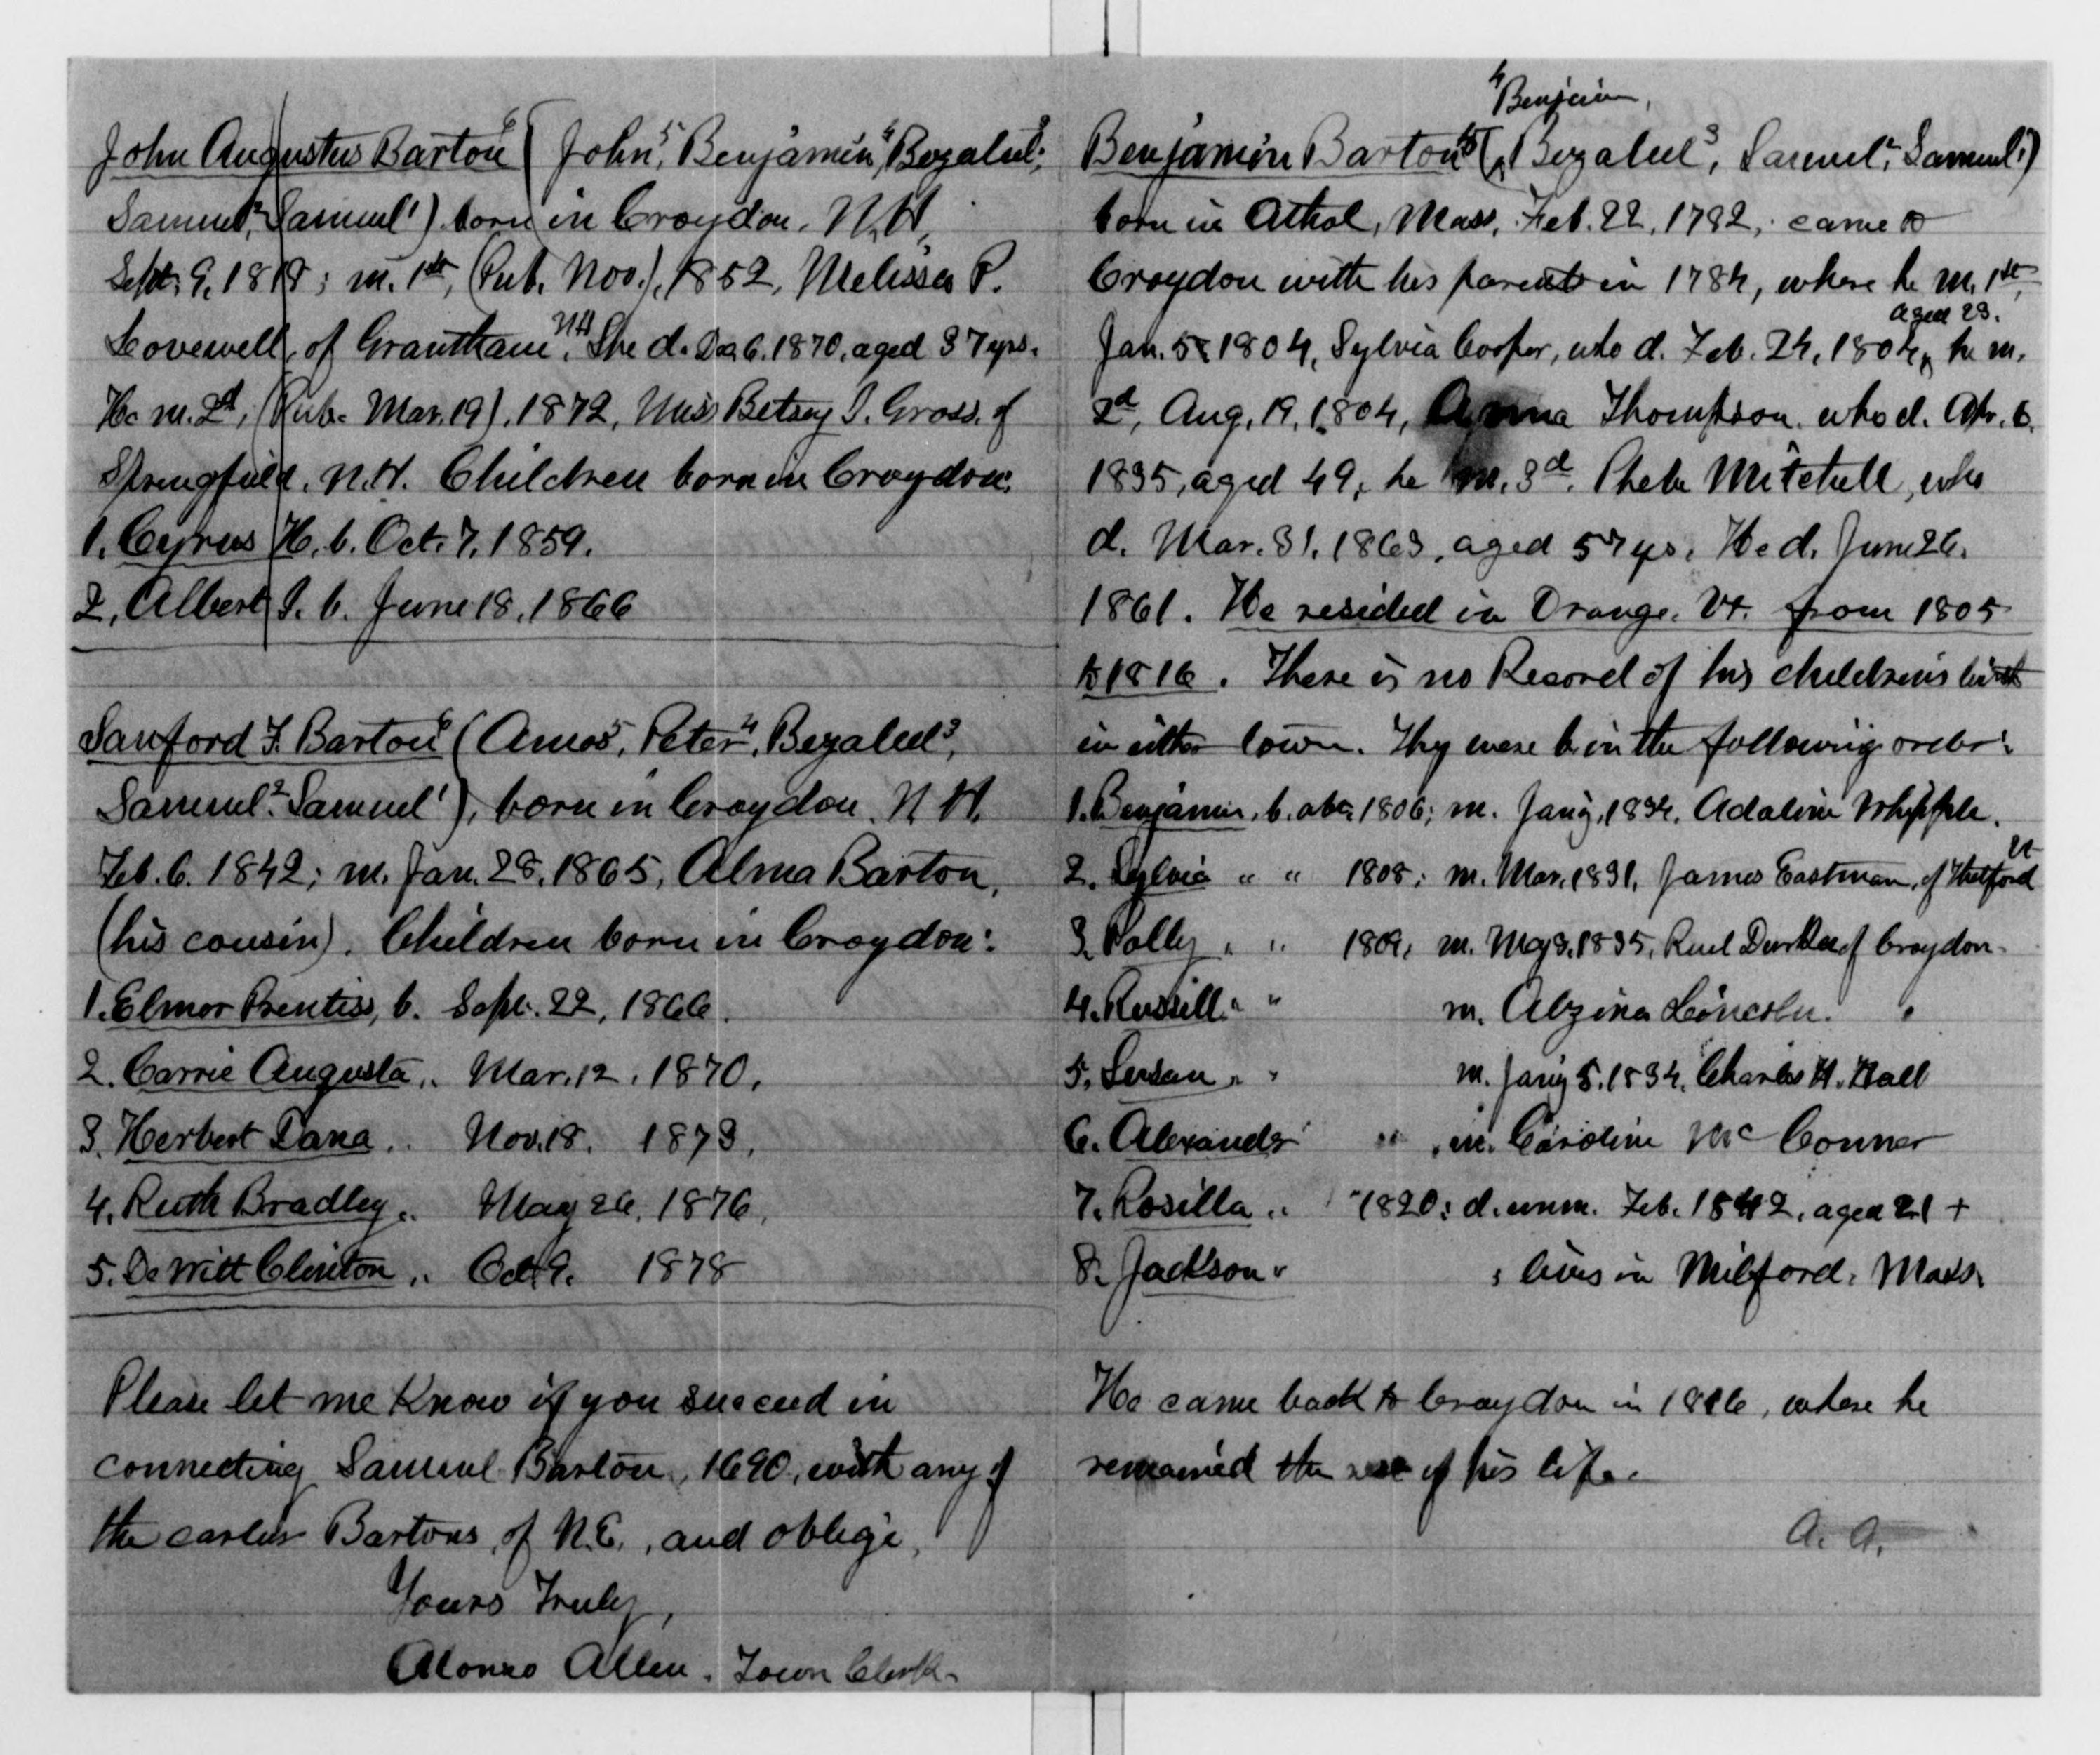 John Augustus Barton⁶ (John⁵, Benjamin⁴, Bezaleel³,
Samuel², Samuel¹) born in Croydon, N.H.
Sept. 9, 1818; m. 1st, (Pub. Nov.), 1852, Melissa P.
Lovewell, of Grantham, N.H. She d. Dec. 6. 1870, aged 37 yrs.
He m. 2d, (Pub. Mar. 19), 1872, Miss Betsey J. Gross, of
Springfield, N.H. Children born in Croydon:
1. Cyrus H. b. Oct. 7, 1859.
2. Albert J. b. June 18, 1866
Sanford F. Barton⁶ (Amos⁵, Peter⁴, Bezaleel³,
Samuel², Samuel¹), born in Croydon, N.H.
Feb. 6. 1842; m. Jan. 28, 1865, Alma Barton,
(his cousin). Children born in Croydon:
1. Elmer Prentiss, b. Sept. 22, 1866.
2. Carrie Augusta, " Mar. 12, 1870,
3. Herbert Dana, " Nov. 18, 1873,
4. Ruth Bradley, " May 26, 1876,
5. De Witt Clinton, " Oct. 9, 1878
Please let me Know if you succeed in
connecting Samuel Barton, 1690, with any of
the earlier Bartons, of N.E., and oblige,
Yours Truly,
Alonzo Allen, Town Clerk.
⁴Benjamin,
Benjamin Barton⁵ (^ Bezaleel³, Samuel², Samuel¹)
born in Athol, Mass, Feb. 22, 1782, came to
Croydon with his parents in 1784, where he m. 1st,
aged 23.
Jan. 5, 1804, Sylvia Cooper, who d. Feb. 24, 1804, ^ he m.
2d, Aug. 19, 1804, Thompson, who d. Apr. 6.
1835, aged 49, he m. 3d, Phebe Mitchell, who
d. Mar. 31, 1863, aged 57 yrs. He d. June 26.
1861. He resided in Orange, Vt. from 1805
to 1816. There is no Record of his childrens birth
in either town. They were b. in the following order:
1. Benjamin, b. abt. 1806; m. Jan'y, 1834, Adaline Whipple.
Vt
2. Sylvia " " 1808; m. Mar. 1831, James Eastman, of Thetford
3. Polly " " 1809; m. May 3, 1835, Ruel Durkee of Croydon
4. Russell " " m. Alzina Lincoln. "
5. Susan " " m. Jan'y 5. 1834, Charles H. Hall
6. Alexander " m. Caroline McConner
7. Rosilla " " 1820; d. unm. Feb. 1842, aged 21 +
8. Jackson " ; lives in Milford, Mass.
He came back to Croydon in 1816, where he
remained the rest of his life.
A. A.